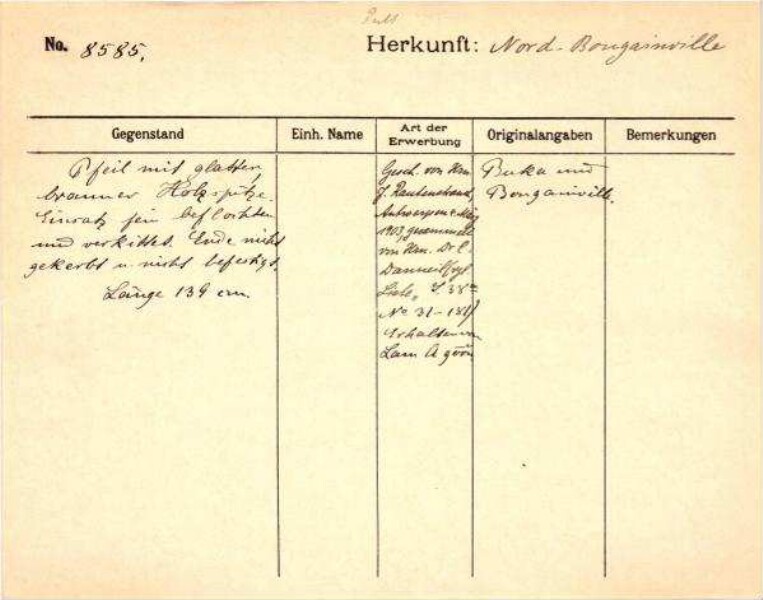 No. 8585.
Herkunft: Nord-Bougainville
Gegenstand
Einh. Name
Art der Erwerbung
Originalangaben
Bemerkungen
Pfeil mit glatter,
brauner Holzspitze.
Einsatz fein beflochten
und verkittet. Ende nicht
gekerbt u. nicht befestigt.
Länge 139 cm.
Gesch. von Hrn.
J. Rautenstrauch,
Antwerpen
1903, gesammelt
von Hrn. Dr. C.
Danneil
Liste S. 38
No 31-
Erhalten
Buka und
Bougainville.